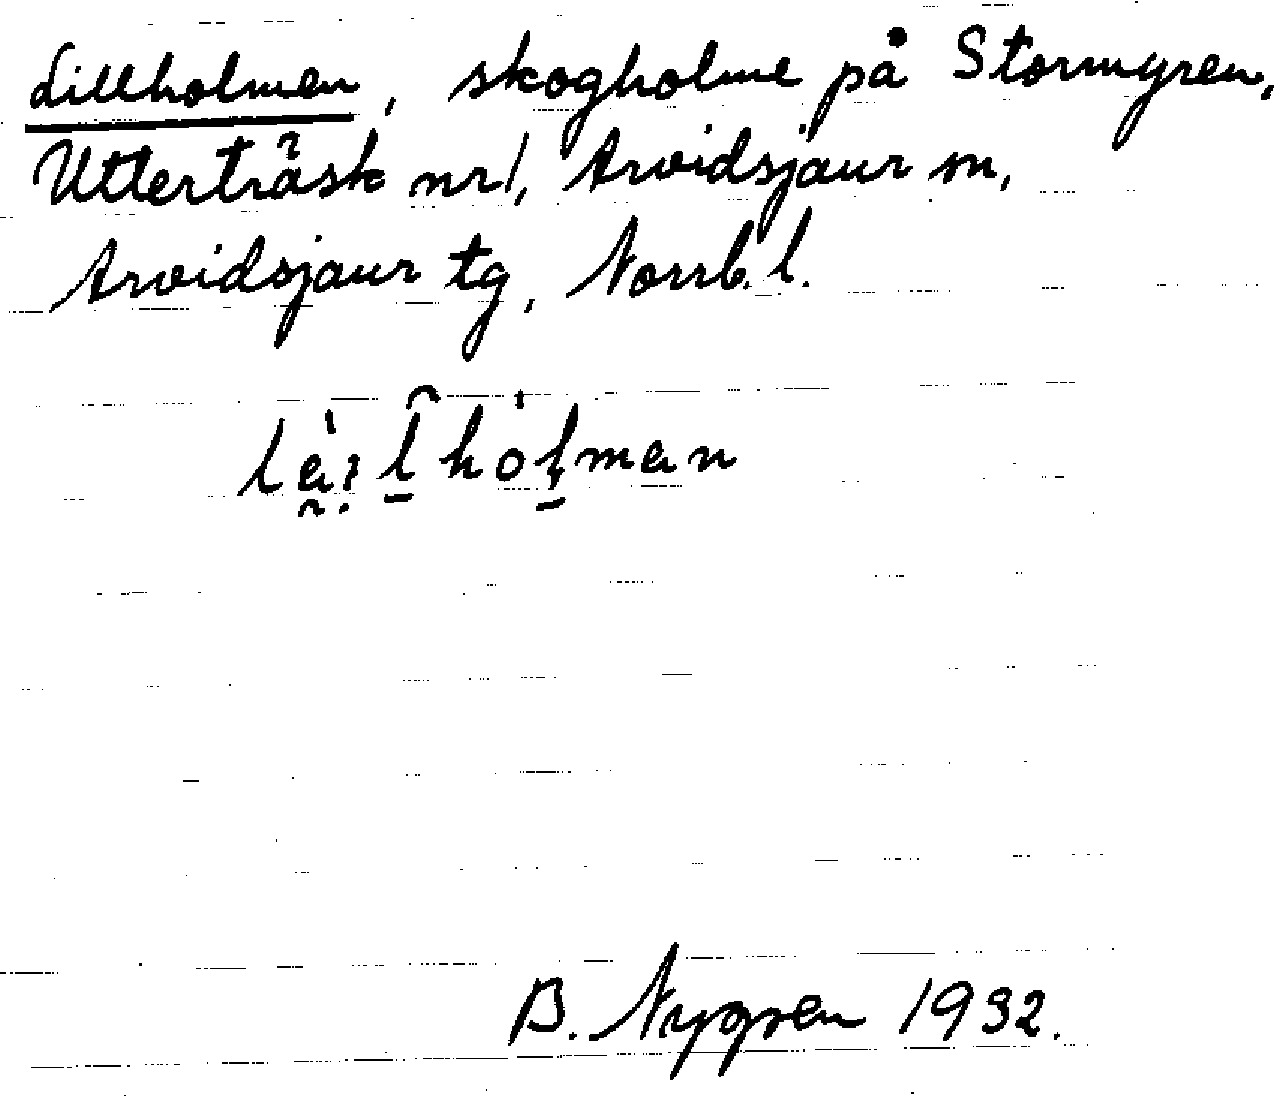 Lillholmen, skogholme på Stormyren,
Utterträsk nr 1, Arvidsjaur sn,
Arvidsjaur tg, Norrb. l.
B. Nygren 1932.